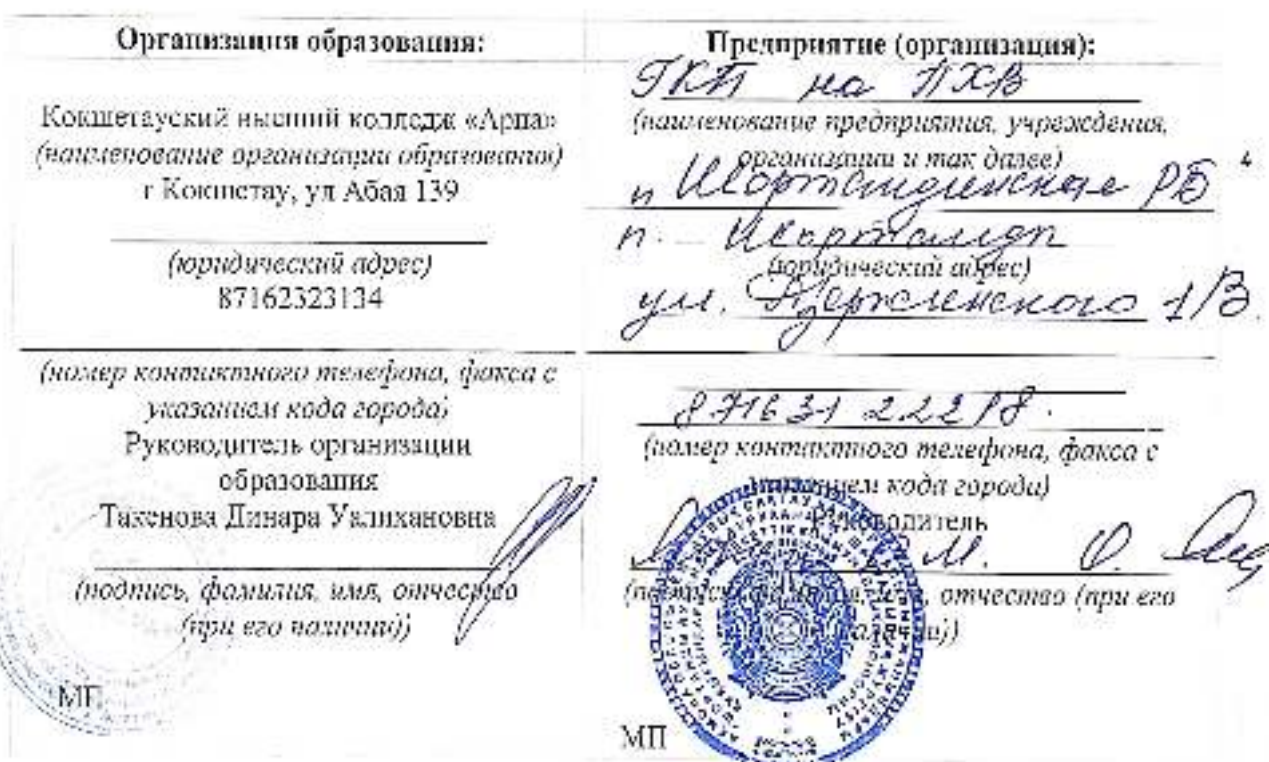 Организация образования:
Кокшетауский высший колледж «Арна»
(наименование организации образования)
г Кокшетау, ул Абая 139
(юридический адрес)
87162323134
(номер контактного телефона, факса с
указанием кода города)
Руководитель организации
образования
Такенова Динара Уалихановна
(подпись, фамилия, имя, отчество
(при его наличии))
МП
Предприятие (организация):
ГКП на ПХВ
(наименование предприятия, учреждения,
организации и так далее)
4
" Шортандинское РБ
п. Шортанды
(юридический адрес)
ул. Дзержинского 1/В.
871631 22218.
(номер контактного телефона, факса с
указанием кода города)
Руководитель
М. О.
отчество (при его
наличии))
МП